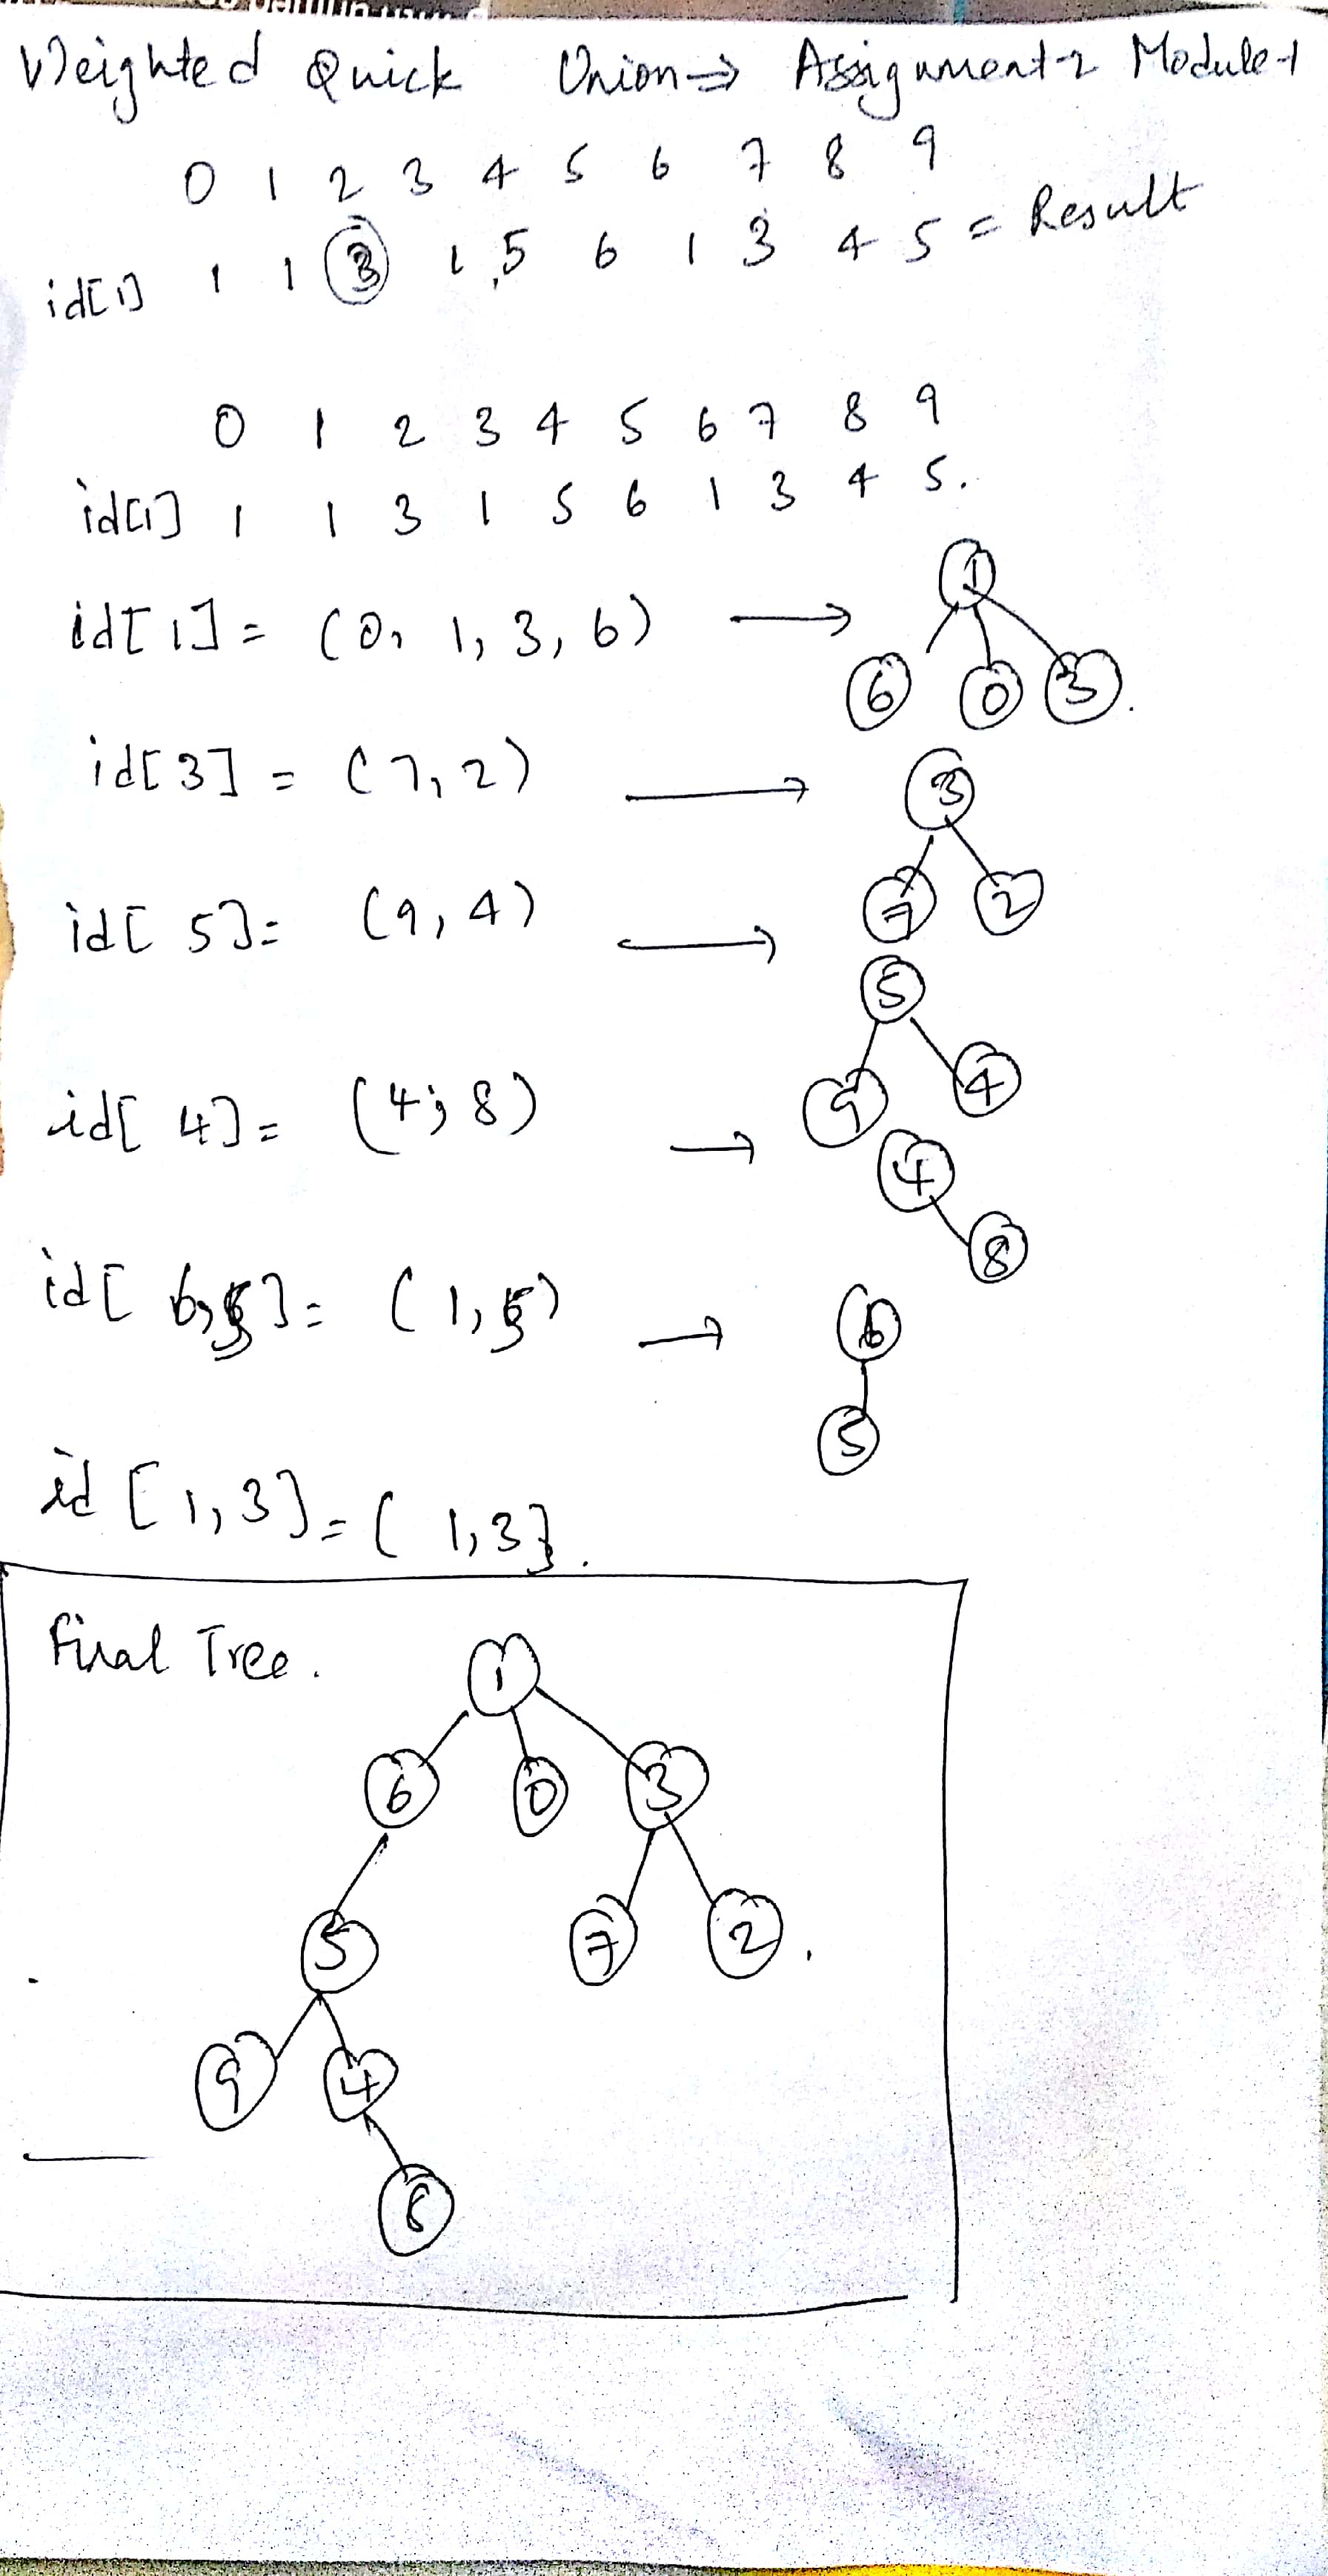 Weighted Quick Union ⇒ Assignment-2 Module-1
0 1 2 3 4 5 6 7 8 9
id[i] 1 1 3 1 5 6 1 3 4 5 = Result
0 1 2 3 4 5 6 7 8 9
id[i] 1 1 3 1 5 6 1 3 4 5.
id[1] = (0, 1, 3, 6) →
1
6 0 3
id[3] = (7, 2) →
3
7 2
id[5] = (9, 4) →
5
9 4
id[4] = (4, 8) →
4
8
id[6,5] = (1,5) →
6
5
id [1,3] = ( 1,3}.
Final Tree.
1
6 0 3
5 7 2
9 4
8